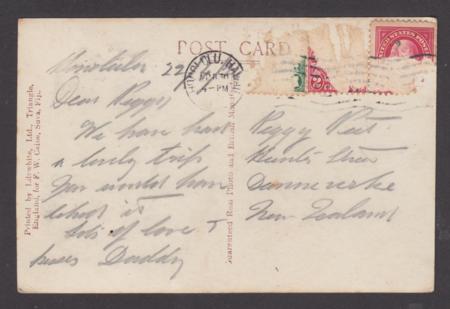 POST CARD
HONOLULU, HAW
4-PM
UNITED STATES POSTAGE
Honolulu
22/
Dear Peggy
We have had
a lovely trip
You would have
liked it
lots of love &
kisses Daddy
Peggy
Street
Dannevirke
New Zealand
Printed by Lilywhite, Ltd., Triangle,
England, for F. W. Caine, Suva, Fiji.
Guaranteed Real Photo and British Manuf